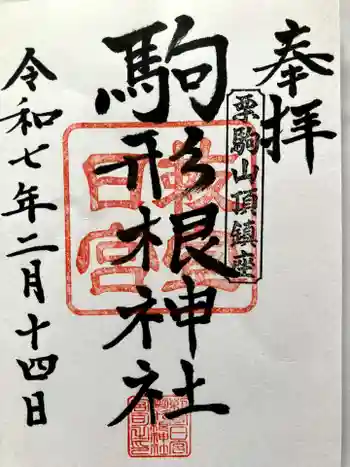 奉拝
栗駒山頂鎮座
駒形根神社
日宮
令和七年二月十四日